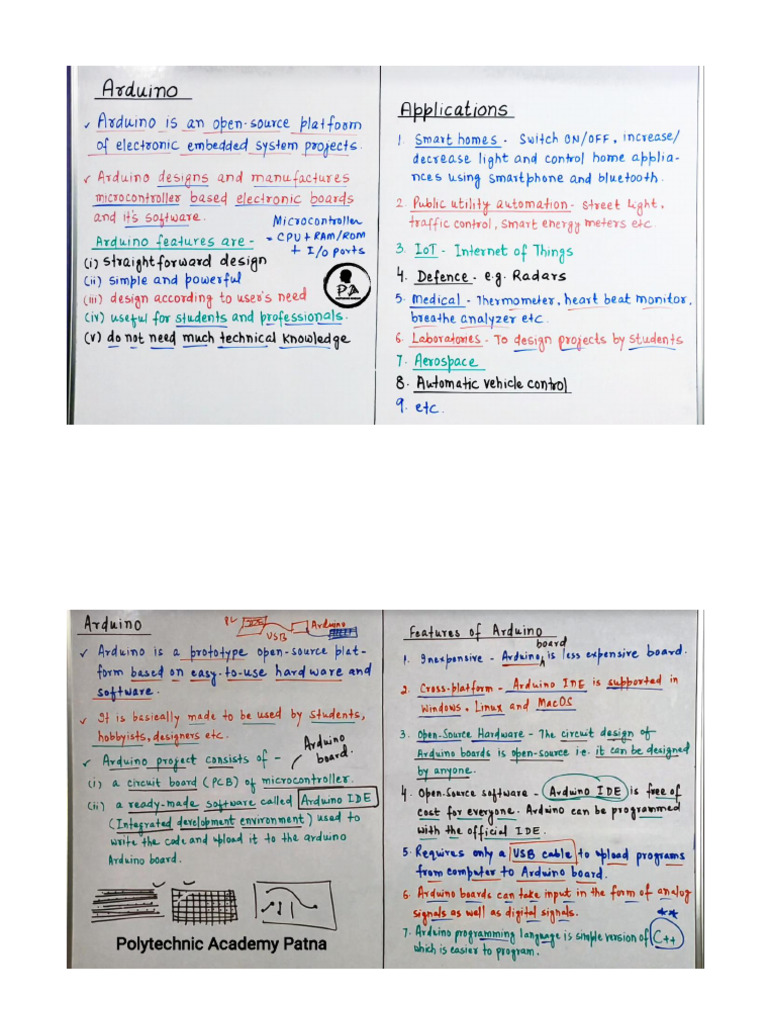 Arduino
✓ Arduino is an open-source platform
of electronic embedded system projects.
✓ Arduino designs and manufactures
microcontroller based electronic boards
and it's software.
Microcontroller
= CPU + RAM/ROM
+ I/O ports
Arduino features are -
(i) straightforward design
(ii) simple and powerful
(iii) design according to user's need
(iv) useful for students and professionals.
(v) do not need much technical knowledge
P A
Applications
1. Smart homes - Switch ON/OFF, increase/
decrease light and control home applia-
nces using smartphone and bluetooth.
2. Public utility automation - street light,
traffic control, smart energy meters etc.
3. IoT - Internet of Things
4. Defence - e.g. Radars
5. Medical - Thermometer, heart beat monitor,
breathe analyzer etc.
6. Laboratories - To design projects by students
7. Aerospace
8. Automatic vehicle control
9. etc.
Arduino
PC
USB
Arduino
✓ Arduino is a prototype open-source plat-
form based on easy-to-use hardware and
software.
✓ It is basically made to be used by students,
hobbyists, designers etc.
✓ Arduino project consists of -
Arduino
board.
(i) a circuit board (PCB) of microcontroller.
(ii) a ready-made software called Arduino IDE
(Integrated development environment) used to
write the code and upload it to the arduino
Arduino board.
Polytechnic Academy Patna
Features of Arduino
board
1. Inexpensive - Arduino is less expensive board.
2. Cross-platform - Arduino IDE is supported in
Windows, Linux and MacOS
3. Open-Source Hardware - The circuit design of
Arduino boards is open-source i.e. it can be designed
by anyone.
4. Open-Source software - Arduino IDE is free of
cost for everyone. Arduino can be programmed
with the official IDE.
5. Requires only a USB cable to upload programs
from computer to Arduino board.
6. Arduino boards can take input in the form of analog
signals as well as digital signals.
7. Arduino programming language is simple version of C++
which is easier to program.